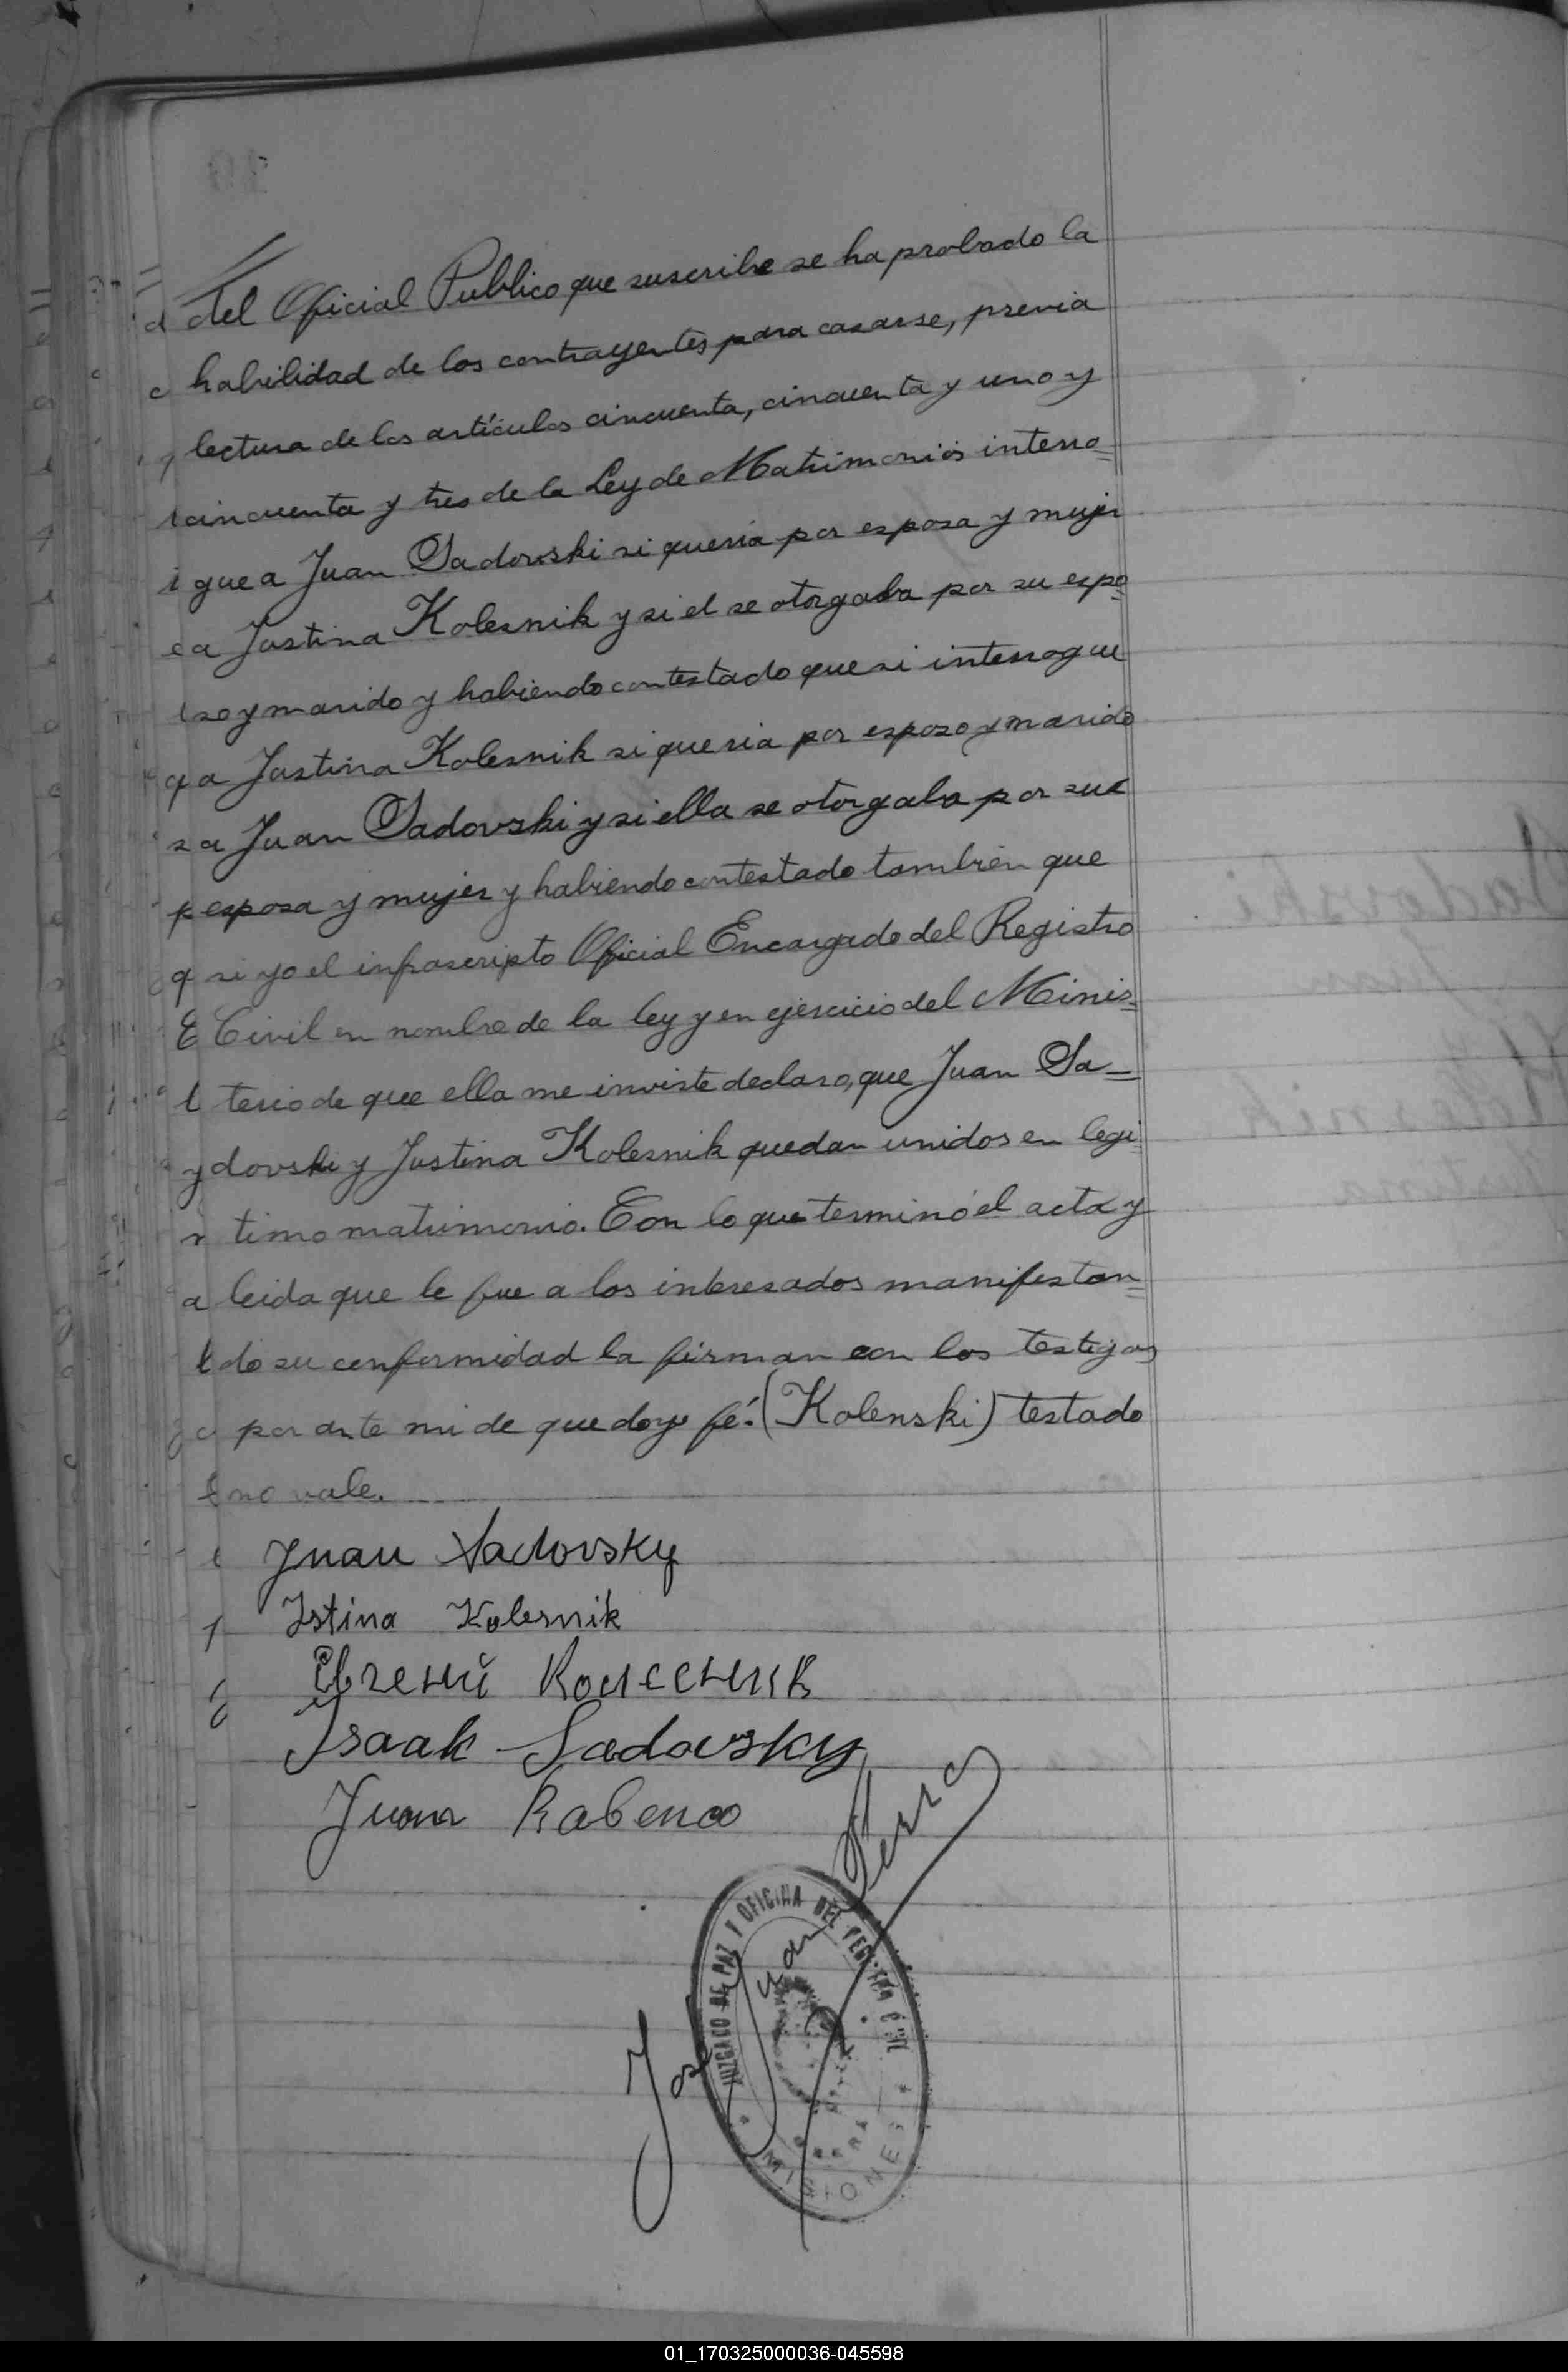 del Oficial Publico que suscribe se ha probado la
habilidad de los contrayentes para casarse, previa
lectura de los artículos cincuenta, cincuenta y uno y
cincuenta y tres de la Ley de Matrimonios interro=
gue a Juan Sadovski si queria por esposa y mujer
a Justina Kolesnik y si el se otorgaba por su espo=
so y marido y habiendo contestado que si interrogue
a Justina Kolesnik si queria por esposo y marido
a Juan Sadovski y si ella se otorgaba por su
esposa y mujer y habiendo contestado también que
si yo el infrascripto Oficial Encargado del Registro
Civil en nombre de la ley y en ejercicio del Minis=
terio de que ella me inviste declaro, que Juan Sa=
dovski y Justina Kolesnik quedan unidos en legi
timo matrimonio. Con lo que terminó el acta y
leida que le fue a los interesados manifestan=
do su conformidad la firman con los testigos
por ante mi de que doy fé.(Kolenski) testado
no vale.
Juan Sadovsky
Istina Kolesnik
Евгений Колесник
Isaak Sadovsky
Juan
JUZGADO DE PAZ Y OFICINA DEL REGISTRO CIVIL
OBERA
MISIONES
Sadovski
Juan
Kolesnik
Justina
01_170325000036-045598